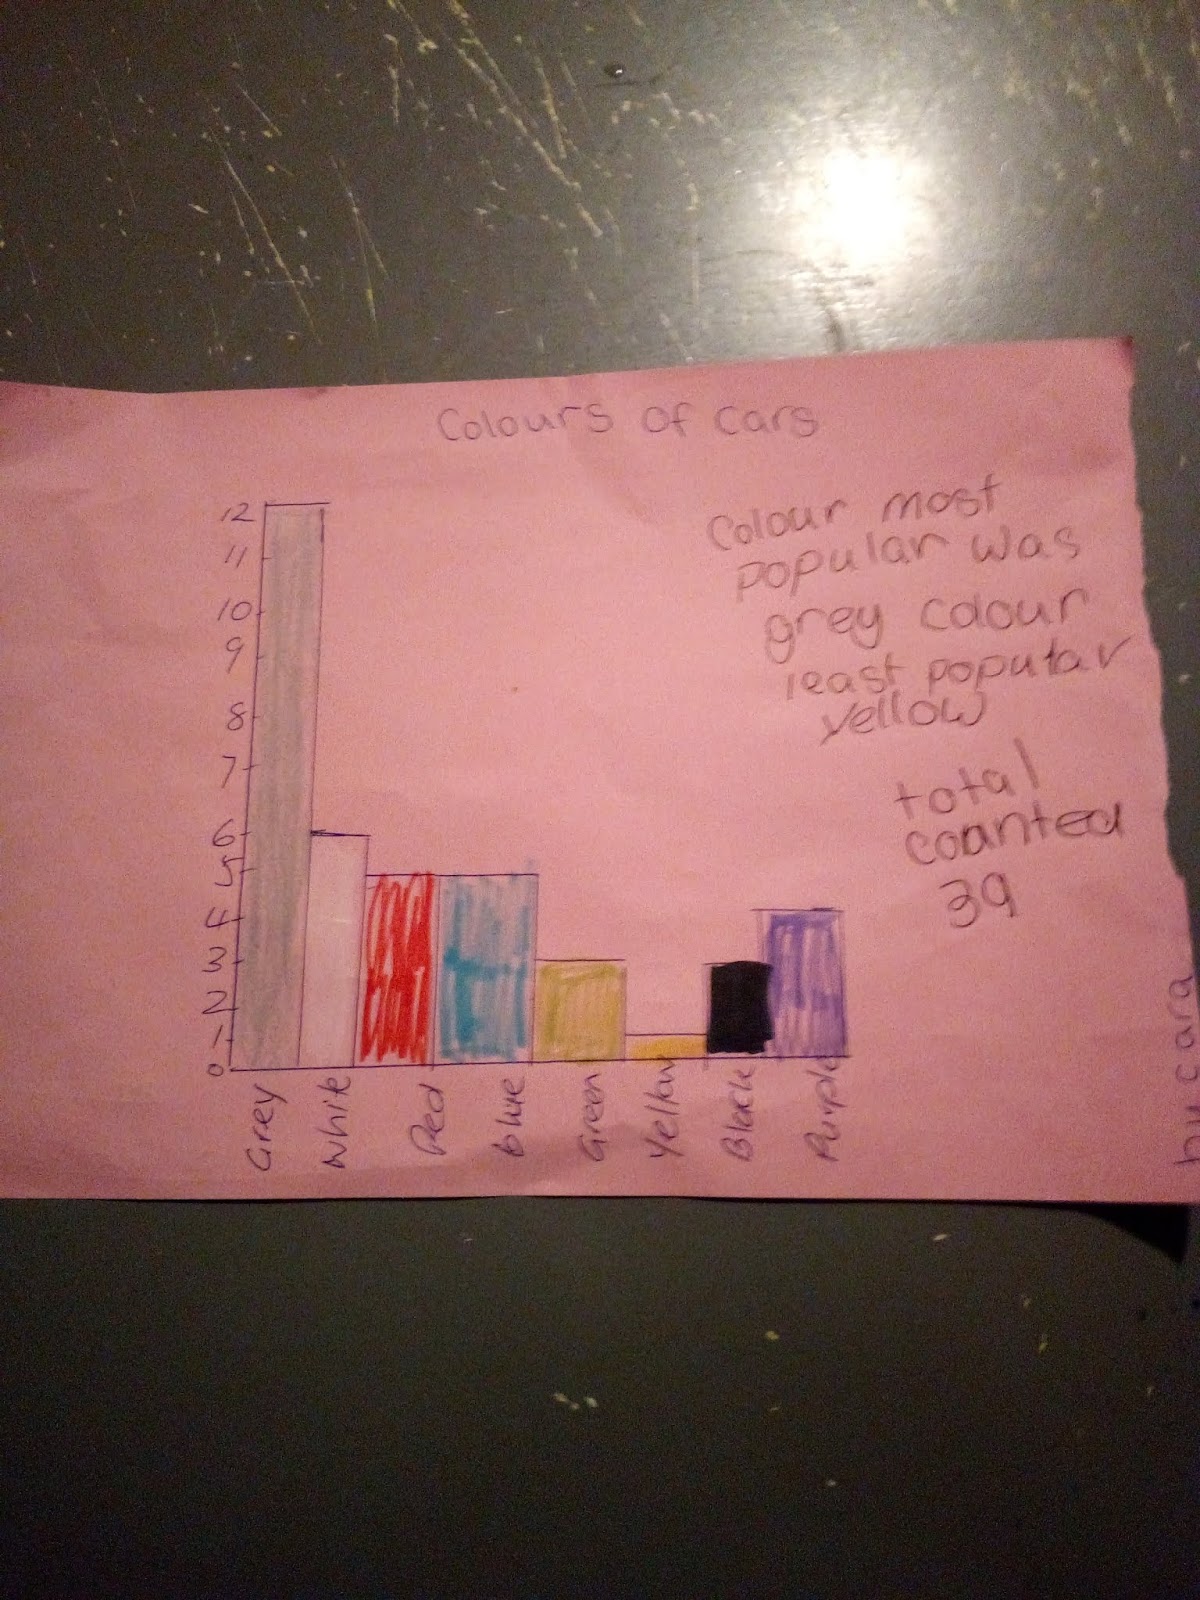 Colours of cars
Colour most
popular was
grey colour
least popular
yellow
total
counted
39
by cara
12
11
10
9
8
7
6
5
4
3
2
1
0
Grey
White
Red
blue
Green
Yellow
Black
Purple